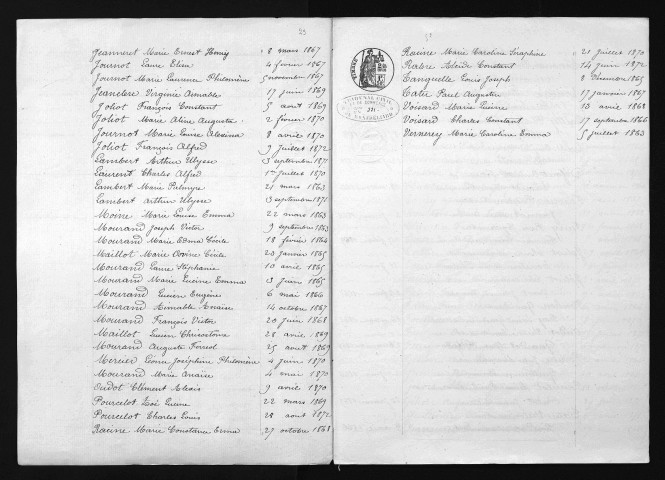 29
Jeanneret Marie Ernest Henry 8 mars 1867
Journot Laure Elisa 4 février 1867
Journot Marie Laurence Philomène 5 novembre 1867
Jeanclerc Virginie Aimable 17 juin 1869
Joliot François Constant 5 aout 1869
Joliot Marie Aline Augusta 2 février 1870
Journot Marie Louise Alexina 8 avril 1870
Joliot François Alfred 9 juillet 1872
Lambert Arthur Ulysse 3 septembre 1871
Laurent Charles Alfred 1er juillet 1870
Lambert Marie Palmyre 21 mars 1863
Lambert Arthur Ulysse 3 septembre 1871
Moine Marie Louise Emma 22 mars 1863
Mourand Joseph Victor 9 septembre 1863
Mourand Marie Edma Cécile 18 février 1864
Maillot Marie Cécile 23 janvier 1865
Mourand Laure Stéphanie 10 avril 1865
Mourand Marie Lucine Emma 3 juin 1865
Mourand Lucien Eugène 6 mai 1866
Mourand Aimable Anaïse 14 octobre 1867
Mourand François Victor 20 juin 1868
Maillot Lucien 28 avril 1869
Mourand Auguste Ferréol 25 aout 1869
Mercier Léonie Joséphine Philomène 4 juin 1870
Mourand Marie Anaïse 4 mai 1870
Oudot Clément Alexis 9 avril 1870
Pourcelot Zoé Lucine 22 mars 1869
Pourcelot Charles Louis 28 aout 1872
Racine Marie Constance Erma 27 octobre 1868
Racine Marie Caroline Séraphine 21 juillet 1870
Constant 14 juin 1872
Louis Joseph 8 décembre 1865
Paul Augustin 17 janvier 1867
Voisard Marie Lucine 10 avril 1868
Voisard Charles Constant 17 septembre 1866
Vernerey Marie Caroline Emma 5 juillet 1863